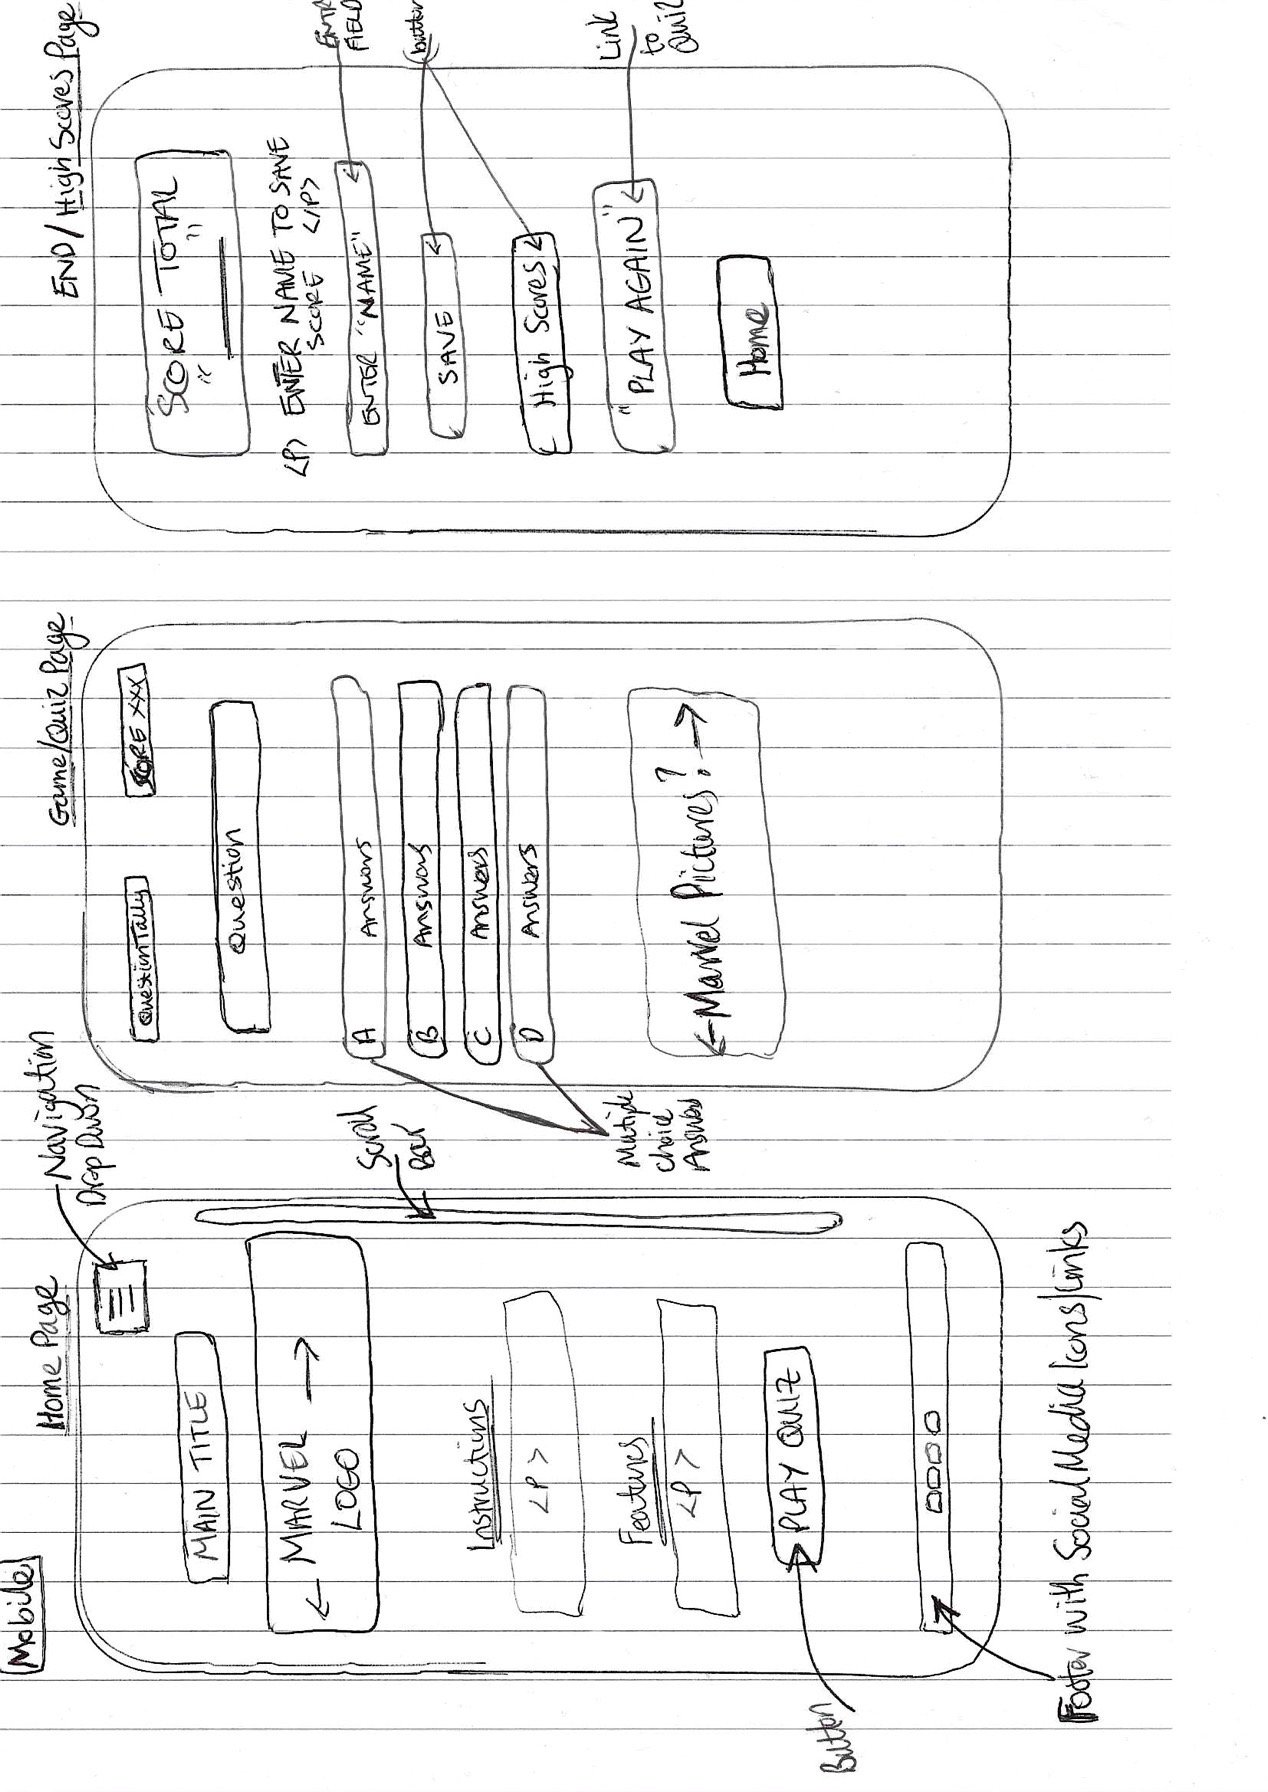 Mobile
Home Page
Navigation
Drop Down
MAIN TITLE
MARVEL
LOGO
Scroll
Bar
Instructions
<P>
Features
<P>
PLAY QUIZ
Button
Footer with Social Media Icons/Links
Game/Quiz Page
Question Tally
SCORE XXX
Question
A Answers
B Answers
C Answers
D Answers
Multiple
choice
Answers
Marvel Pictures?
END / High Scores Page
SCORE TOTAL
" "
<P> ENTER NAME TO SAVE
SCORE </P>
ENTER "NAME"
ENTR
FIELD
SAVE
button
High Scores
"PLAY AGAIN"
Link
to
Quiz
Home